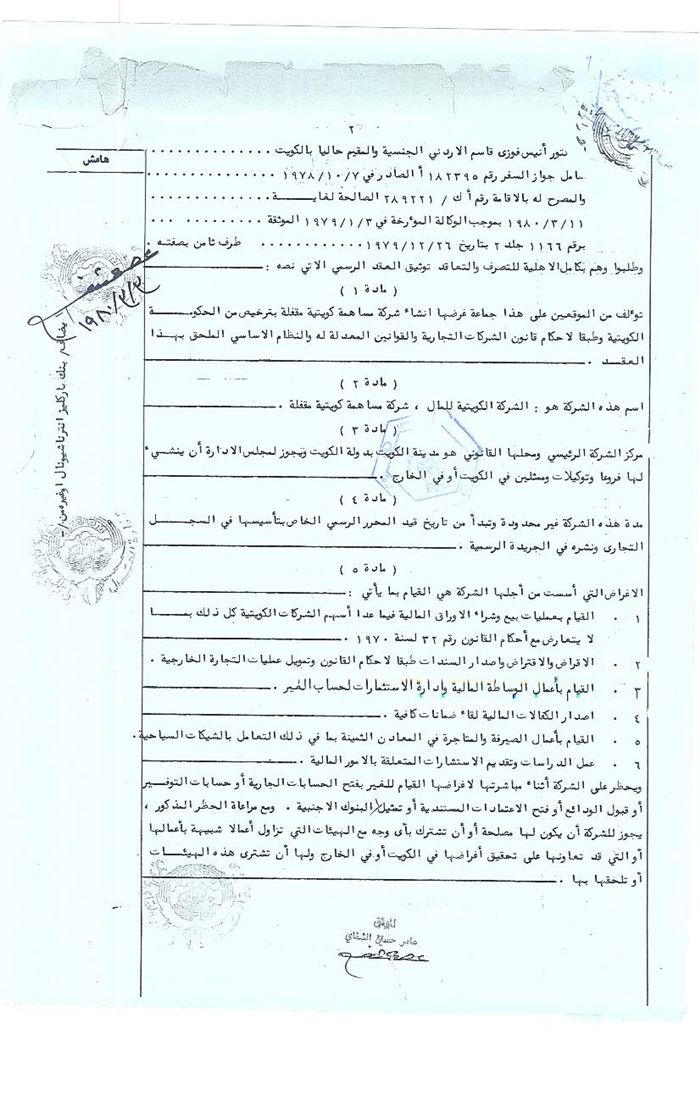 ٢
هامش
دكتور أنيس فوزى قاسم الاردني الجنسية والمقيم حاليا بالكويت ............
حامل جواز السفر رقم ١٨٢٣٩٥ أ الصادر في ١٩٧٨/١٠/٧ ............
والمصرح له بالاقامة رقم أ ك / ٢٨٩٢٢١ الصالحة لغايـــة ............
١٩٨٠/٣/١١ بموجب الوكالة المؤرخة في ١٩٧٩/١/٣ الموثقة ............
برقم ١١٦٦ جلد ٢ بتاريخ ١٩٧٩/١٢/٢٦ ............ طرف ثامن بصفته .
وطلبوا وهم بكامل الاهلية للتصرف والتعاقد توثيق العقد الرسمي الاتي نصه :
( مادة ١ )
تؤلف من الموقعين على هذا جماعة غرضها انشاء شركة مساهمة كويتية مقفلة بترخيص من الحكومـــة
الكويتية وطبقا لاحكام قانون الشركات التجارية والقوانين المعدلة له والنظام الاساسي الملحق بهـذا
العقـد .
( مادة ٢ )
اسم هذه الشركة هو : الشركة الكويتية للمال ، شركة مساهمة كويتية مقفلة .
( مادة ٣ )
مركز الشركة الرئيسي ومحلها القانوني هو مدينة الكويت بدولة الكويت ويجوز لمجلس الادارة أن ينشيء
لها فروعا وتوكيلات وممثلين في الكويت أو في الخارج .
( مادة ٤ )
مدة هذه الشركة غير محدودة وتبدأ من تاريخ قيد المحرر الرسمي الخاص بتأسيسها في السجـــل
التجارى ونشره في الجريدة الرسمية .
( مادة ٥ )
الاغراض التي أسست من أجلها الشركة هي القيام بما يأتي :
١ . القيام بعمليات بيع وشراء الاوراق المالية فيما عدا أسهم الشركات الكويتية كل ذلك بمـــا
لا يتعارض مع أحكام القانون رقم ٣٢ لسنة ١٩٧٠ .
٢ . الاقراض والاقتراض واصدار السندات طبقا لاحكام القانون وتمويل عمليات التجارة الخارجية .
٣ . القيام بأعمال الوساطة المالية وادارة الاستثمارات لحساب الغير .
٤ . اصدار الكفالات المالية لقاء ضمانات كافية .
٥ . القيام بأعمال الصيرفة والمتاجرة في المعادن الثمينة بما في ذلك التعامل بالشيكات السياحية .
٦ . عمل الدراسات وتقديم الاستشارات المتعلقة بالامور المالية .
ويحظر على الشركة أثناء مباشرتها لاغراضها القيام للغير بفتح الحسابات الجارية أو حسابات التوفير
أو قبول الودائع أو فتح الاعتمادات المستندية أو تمثيل / البنوك الاجنبية . ومع مراعاة الحظر المذكور ،
يجوز للشركة أن يكون لها مصلحة أو أن تشترك بأى وجه مع الهيئات التي تزاول أعمالا شبيهة بأعمالها
أو التي قد تعاونها على تحقيق أغراضها في الكويت أو في الخارج ولها أن تشترى هذه الهيئـــات
أو تلحقها بها .
يضاف / بنك باركليز انترناشيونال أو غيره من /-
١٩٨٠/٣/٣
الموثق